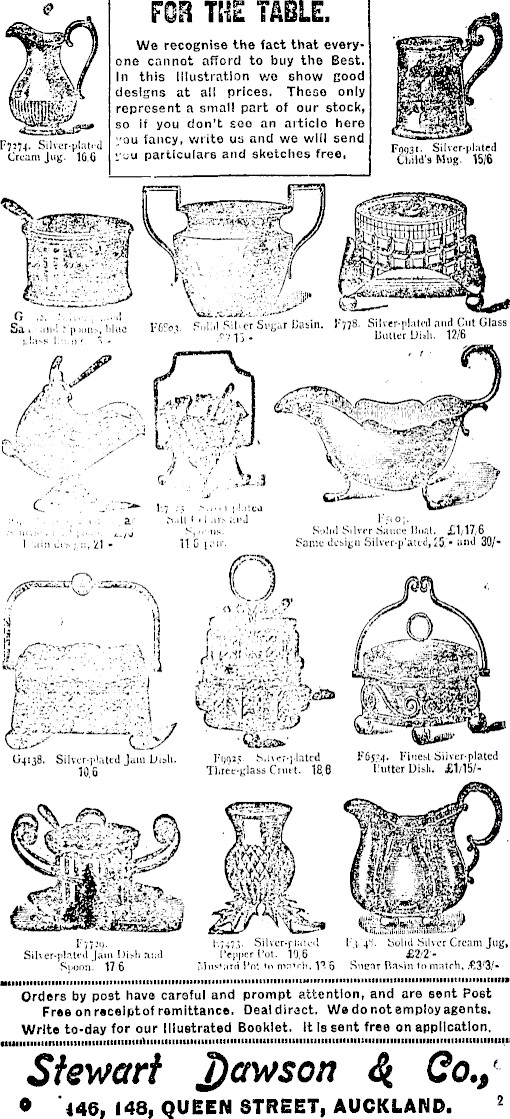 FOR THE TABLE.
We recognise the fact that every-
one cannot afford to buy the Best.
In this Illustration we show good
designs at all prices. These only
represent a small part of our stock,
so if you don't see an article here
you fancy, write us and we will send
you particulars and sketches free.
F7274. Silver-plated
Cream Jug. 16 6
F9931. Silver-plated
Child's Mug. 15/6
and Spoons, blue
Solid Silver Sugar Basin.
F778. Silver-plated and Cut Glass
Butter Dish. 12/6
Silver-plated
Salt Cellars and
Spoons.
11 6 pair.
Plain design, 21 -
Solid Silver Sauce Boat. £1,17,6
Same design Silver-plated, 25 - and 30/-
G4138. Silver-plated Jam Dish.
10,6
F9925. Silver-plated
Three-glass Cruet. 18,6
F6534. Finest Silver-plated
Butter Dish. £1/15/-
F7729.
Silver-plated Jam Dish and
Spoon. 17 6
Silver-plated
Pepper Pot. 10,6
Mustard Pot to match, 12 6
Solid Silver Cream Jug,
£2/2 -
Sugar Basin to match, £3/3/-
Orders by post have careful and prompt attention, and are sent Post
Free on receipt of remittance. Deal direct. We do not employ agents.
Write to-day for our Illustrated Booklet. It is sent free on application.
Stewart Dawson & Co.,
146, 148, QUEEN STREET, AUCKLAND. 2